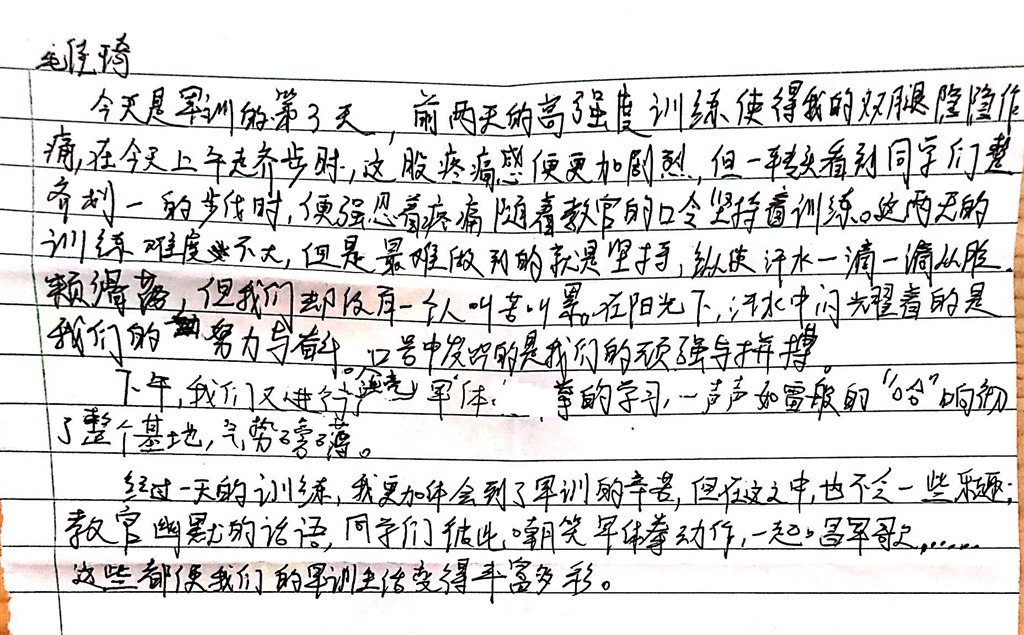 毛佳琦
今天是军训的第3天,前两天的高强度训练使得我的双腿隐隐作
痛,在今天上午走齐步时,这股疼痛感便更加剧烈,但一转头看到同学们整
齐划一的步伐时,便强忍着疼痛随着教官的口令坚持着训练。这两天的
训练难度不大,但是最难做到的就是坚持,纵使汗水一滴一滴从脸
颊滑落,但我们却没有一个人叫苦叫累。在阳光下,汗水中闪光耀着的是
我们的努力与奋斗。口号中发出的是我们的顽强与拼搏。
下午,我们又进行了军体拳的学习,一声声如雷般的“哈”响彻
了整个基地,气势磅礴。
经过一天的训练,我更加体会到了军训的辛苦,但在这之中,也不乏一些乐趣;
教官幽默的话语,同学们彼此嘲笑军体拳动作,一起唱军歌……
这些都使我们的军训生活变得丰富多彩。